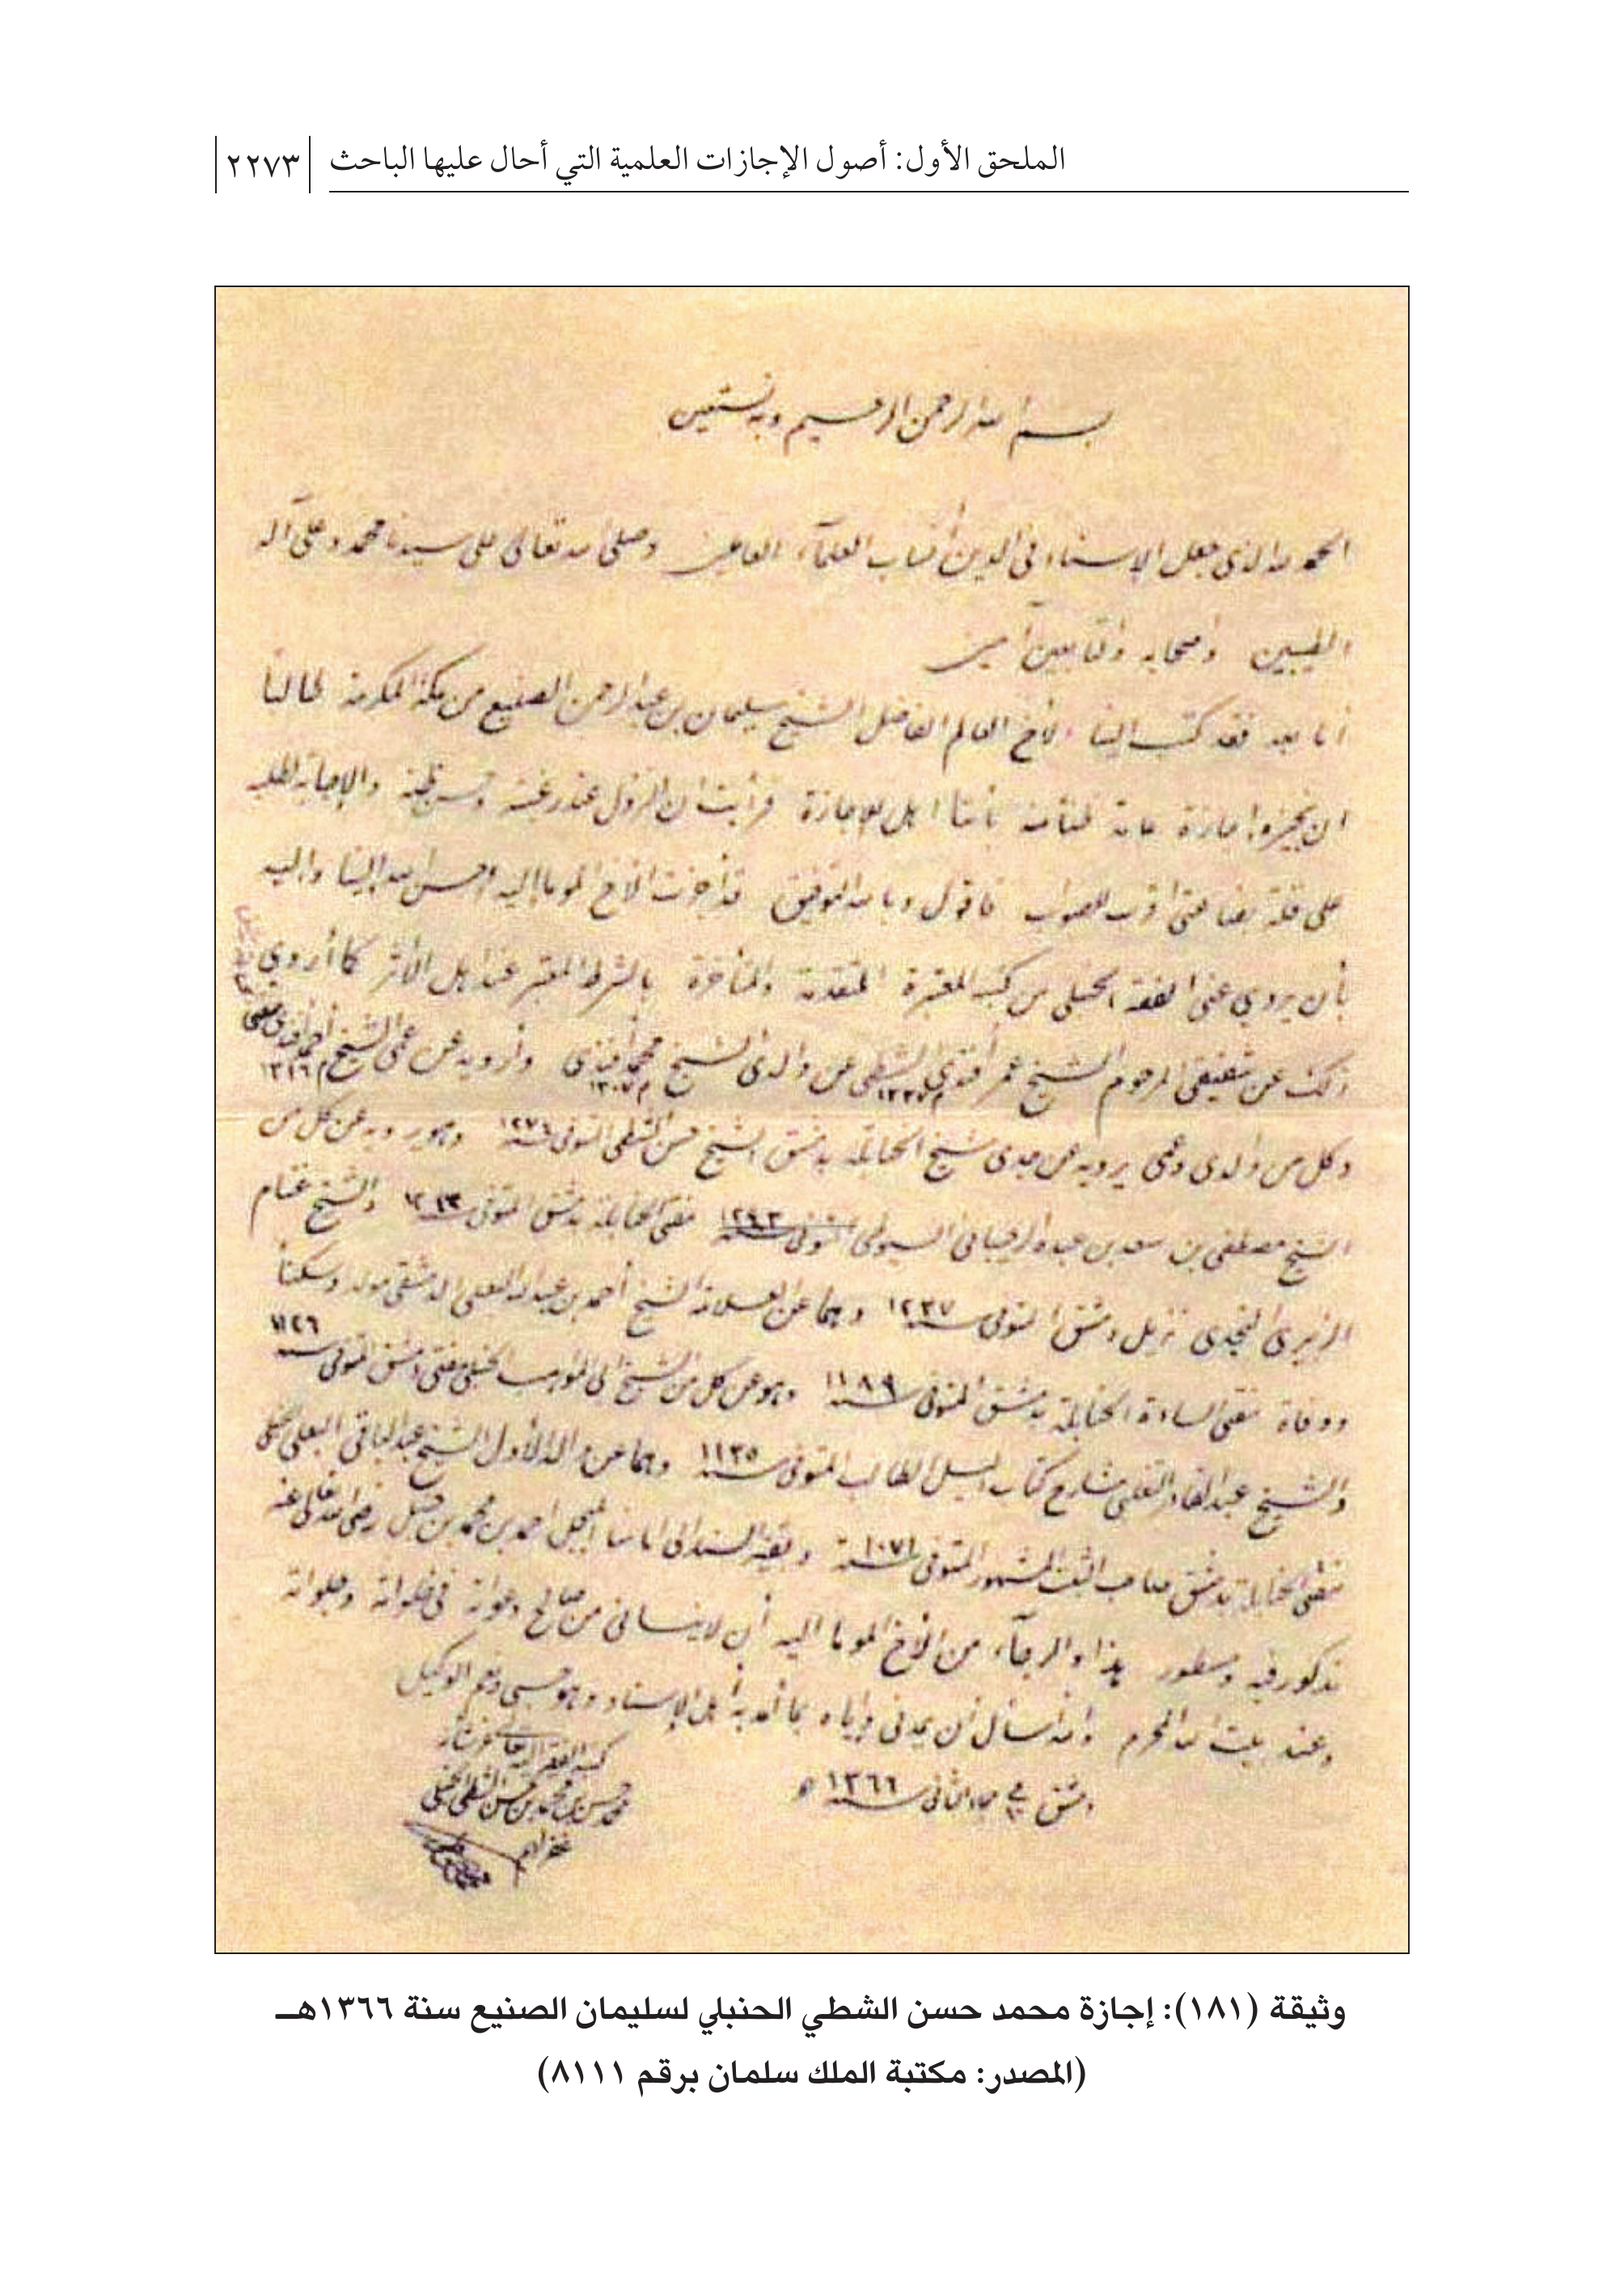 الملحق الأول: أصول الإجازات العلمية التي أحال عليها الباحث ٢٢٧٣
بسم الله الرحمن الرحيم وبه نستعين
الحمد لله الذي جعل الإسناد في الدين أنساب العلمآء العاملين وصلى الله تعالى على سيدنا محمد وعلى آله
الطيبين وأصحابه والتابعين آمين
أما بعد فقد كتب إلينا الأخ العالم الفاضل الشيخ سليمان بن عبد الرحمن الصنيع من مكة المكرمة طالباً
ان نجيزه إجازة عامة ظنا منه بأننا اهل للإجازة فرأيت ان النزول عند رغبته وحسن ظنه والإجابة لطلبه
على قلة بضاعتي اقرب للصواب فاقول وبالله التوفيق قد أجزت الأخ الموما إليه احسن الله إلينا واليه
بأن يروي عني الفقه الحنبلي من كتبه المعتبرة المتقدمة والمتأخرة بالشرط المعتبر عند اهل الأثر كما أروي
ذلك عن شقيقي المرحوم الشيخ عمر أفندي الشطي عن والدي الشيخ محمد أفندي م ١٣٠٧ وأرويه عن عمي الشيخ أحمد أفندي م ١٣١٦
وكل من والدي وعمي يرويه عن جدي شيخ الحنابلة بدمشق الشيخ حسن الشطي المتوفى سنة ١٢٧٤ وهو يرويه عن كل من
الشيخ مصطفى بن سعد بن عبده الرحيباني السيوطي مفتي الحنابلة بدمشق المتوفى سنة والشيخ غنام
الزبيري النجدي نزيل دمشق المتوفى سنة ١٢٣٧ وهما عن العلامة الشيخ أحمد بن عبد الله البعلي الدمشقي مولدا وسكناً
ووفاة مفتي السادة الحنابلة بدمشق المتوفى سنة ١١٨٩ وهو عن كل من الشيخ ابي المواهب الحنبلي مفتي دمشق المتوفى سنة ١١٢٦
والشيخ عبد القادر التغلبي شارح كتاب دليل الطالب المتوفى سنة ١١٣٥ وهما عن والد الأول الشيخ عبد الباقي البعلي الحنبلي
مفتي الحنابلة بدمشق صاحب الثبت المشهور المتوفى سنة ١٠٧١ وبقية السند الى امامنا المبجل احمد بن محمد بن حنبل رضي الله تعالى عنه
مذكور فيه ومسطور هذا والرجآء من الأخ الموما اليه أن لا ينساني من صالح دعواته في خلواته وجلواته
وعند بيت الله المحرم والله اسأل أن يمدني وإياه بما أمد به أهل الإسناد وهو حسبي ونعم الوكيل
دمشق في جماد الثاني سنة ١٣٦٦ هـ
كتبه الفقير اليه تعالى
محمد حسن بن محمد بن حسن الشطي الحنبلي
غفر لهم
وثيقة (١٨١): إجازة محمد حسن الشطي الحنبلي لسليمان الصنيع سنة ١٣٦٦هـ
(المصدر: مكتبة الملك سلمان برقم ٨١١١)